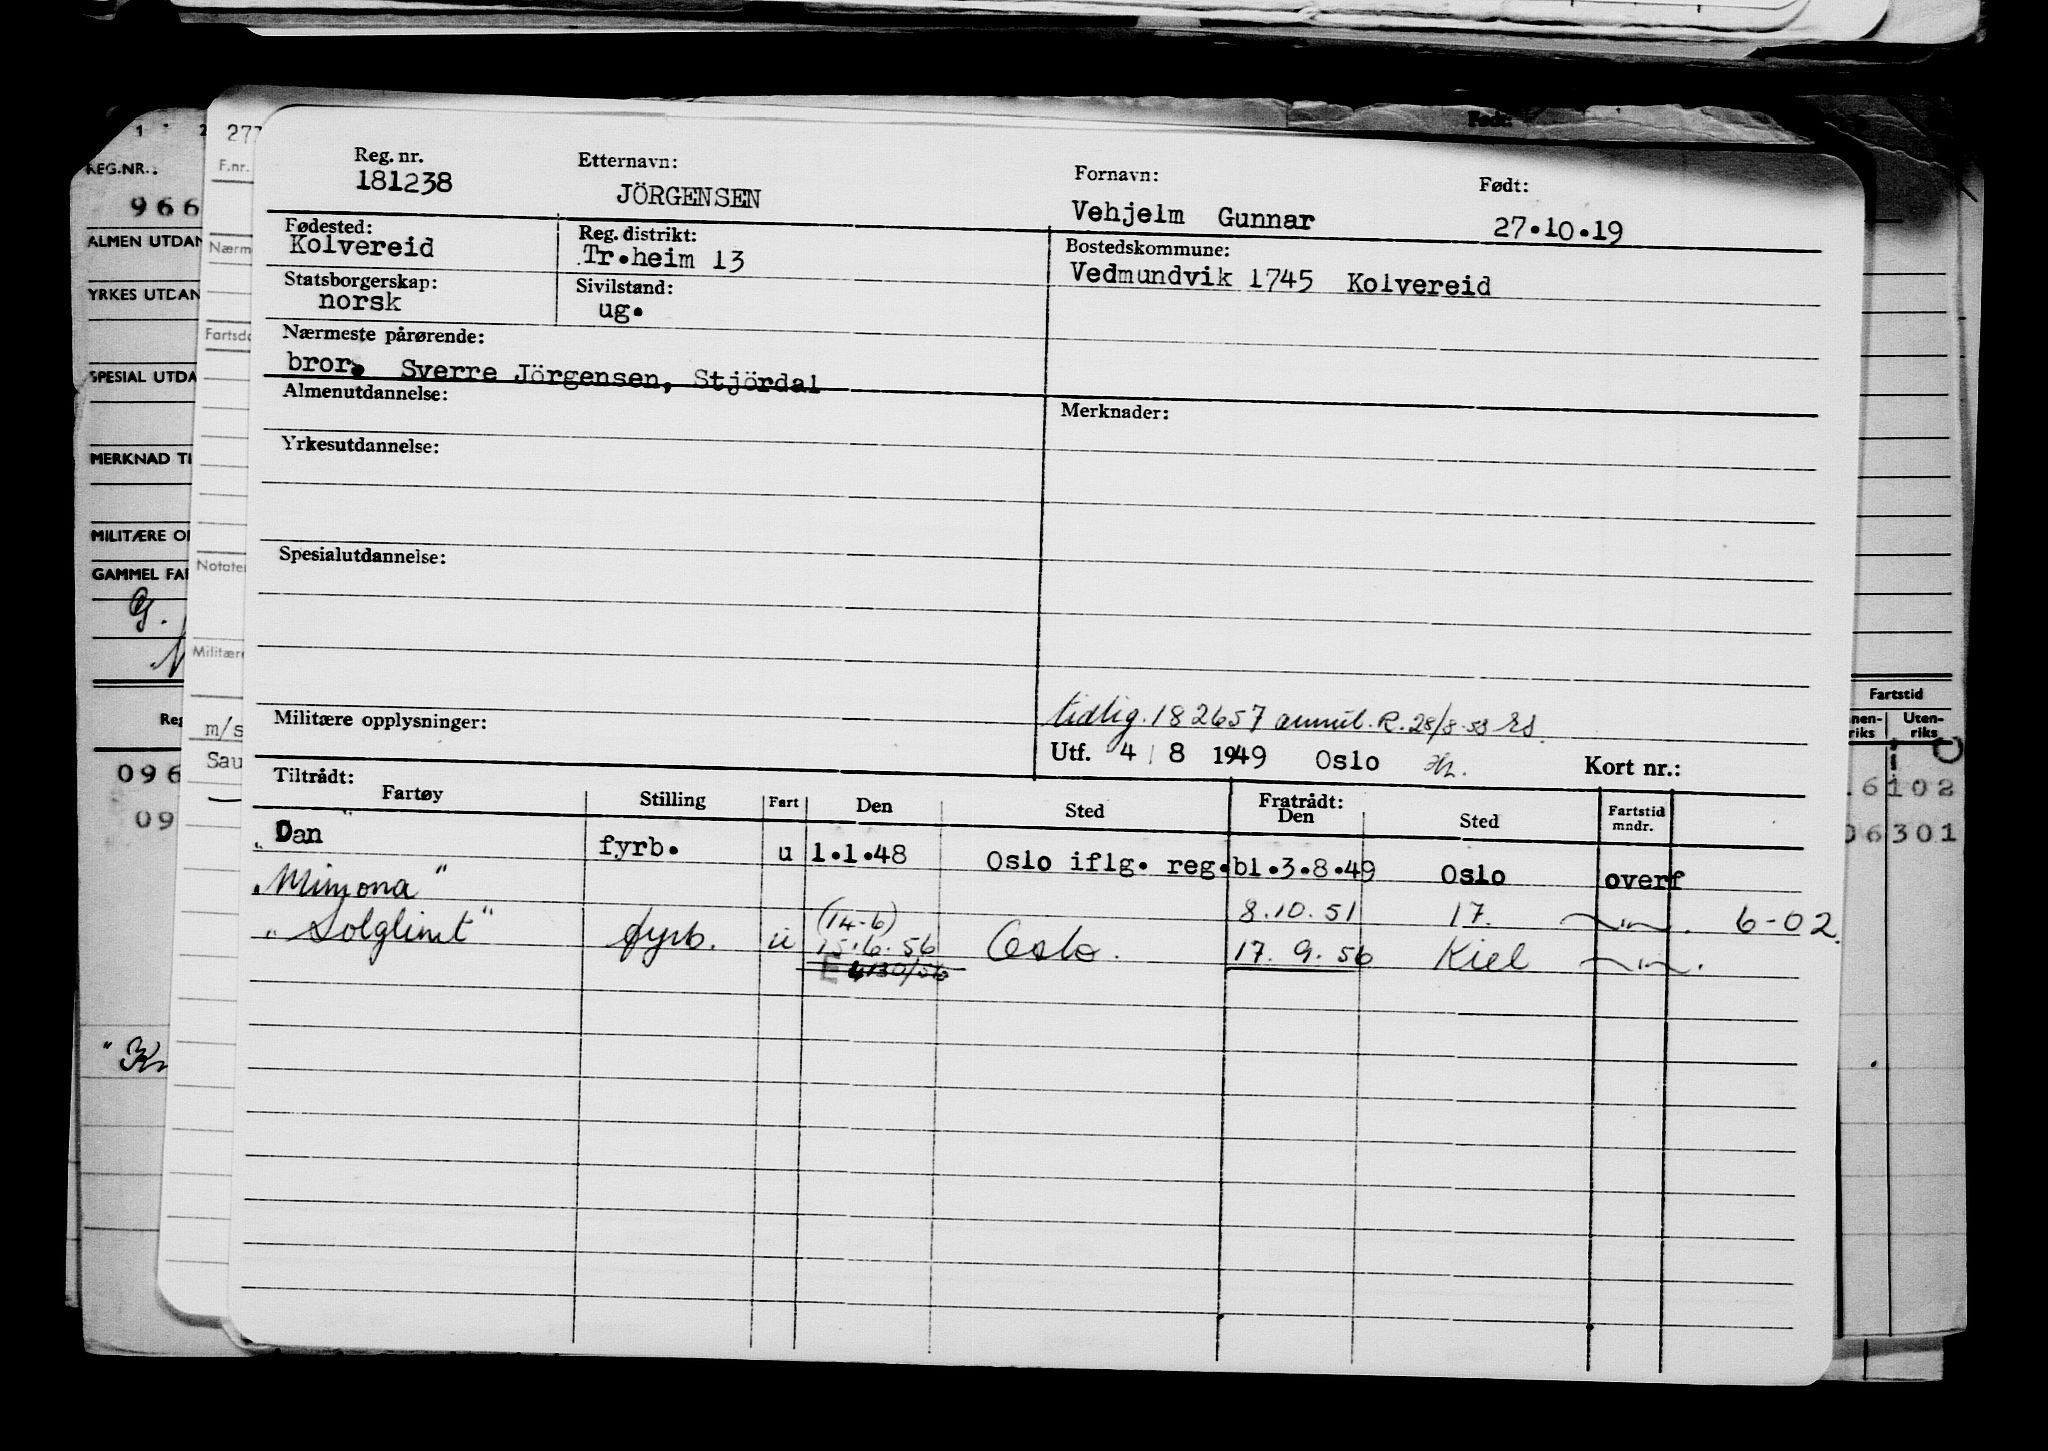 Reg. nr. Etternavn: Fornavn: Født:
181238 JÖRGENSEN Vehjelm Gunnar 27.10.19
Fødested: Reg. distrikt: Bostedskommune:
Kolvereid Tr.heim 13 Vedmundvik 1745 Kolvereid
Statsborgerskap: Sivilstand:
norsk ug.
Nærmeste pårørende:
bror. Sverre Jörgensen, Stjördal
Almenutdannelse: Merknader:
Yrkesutdannelse:
Spesialutdannelse:
tidlig. 182657 annul. R. 28/8-53
Militære opplysninger:
Utf. 4/8 1949 Oslo Kort nr.:
Tiltrådt: Fratrådt:
Fartøy Stilling Fart Den Sted Den Sted Fartstid mndr.
"Dan" fyrb. u 1.1.48 Oslo iflg. reg.bl. 3.8.49 Oslo overf
"Mimona" 8.10.51 17. 6-02
(14-6)
"Solglimt" fyrb. u 15.6.56 Oslo. 17.9.56 Kiel
E 4130/56
1 2
REG.NR.:
966
ALMEN UTDAN
YRKES UTDAN
SPESIAL UTDA
MERKNAD TI
MILITÆRE O
GAMMEL FA
G.
Reg
096
09
"Kr
277
F.nr.
Nærm
Fartsdo
Notater
Militære
m/s
Sau
Født:
Fartstid
nen-riks Uten-riks
6 102
06 301